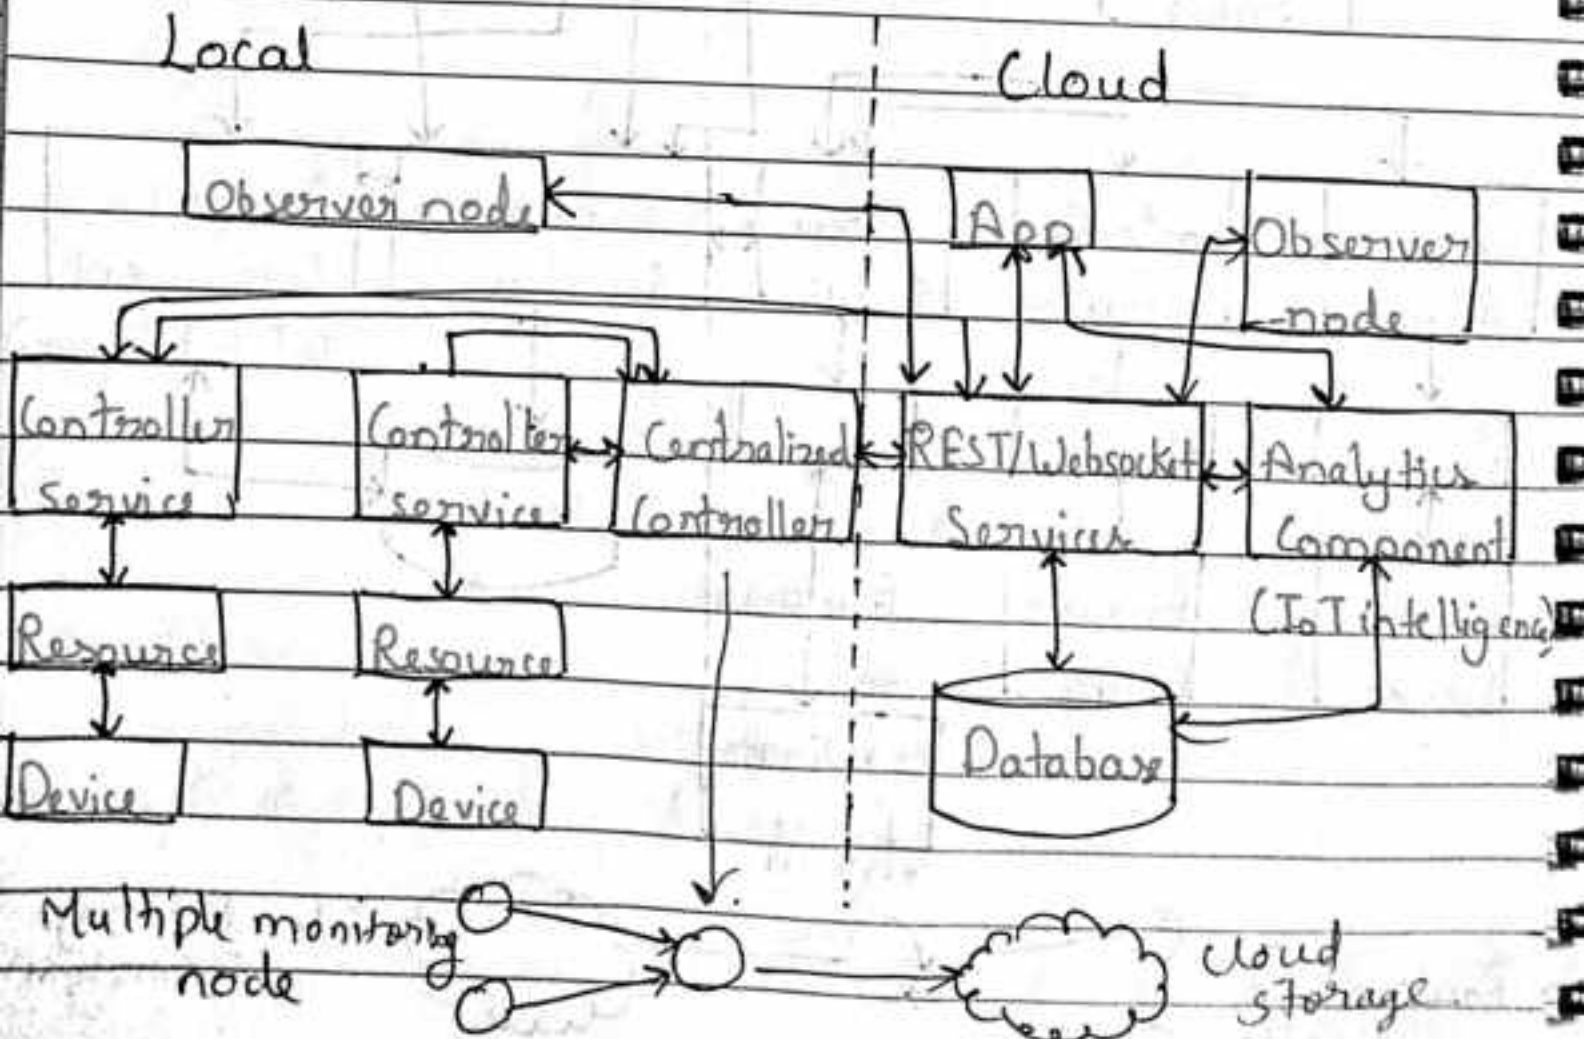 Local
Cloud
Observer node
App
Observer
node
Controller
service
Controller
service
Centralized
Controller
REST/Websocket
Services
Analytics
Component
(IoT intelligence)
Resource
Resource
Database
Device
Device
Multiple monitoring
node
cloud
storage